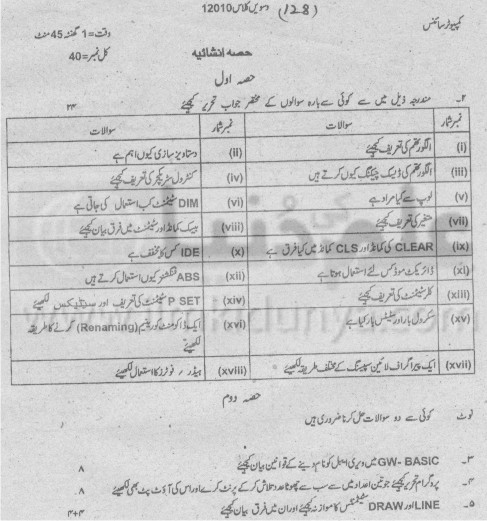 کمپیوٹر سائنس
(128) دسویں کلاس 12010
وقت=1 گھنٹہ 45 منٹ
حصہ انشائیہ
کل نمبر=40
حصہ اول
۲۔ مندرجہ ذیل میں سے کوئی سے بارہ سوالوں کے مختصر جواب تحریر کیجئے ۲۴
نمبر شمار سوالات نمبر شمار سوالات
(i) الگورتھم کی تعریف کیجئے (ii) دستاویز سازی کیوں اہم ہے
(iii) الگورتھم کی ڈیسک چیکنگ کیوں کرتے ہیں (iv) کنٹرول سٹرکچر کی تعریف کیجئے
(v) لوپ سے کیا مراد ہے (vi) DIM سٹیٹمنٹ کب استعمال کی جاتی ہے
(vii) متغیر کی تعریف کیجئے (viii) بیسک کمانڈ اور سٹیٹمنٹ میں فرق بیان کیجئے
(ix) CLEAR کی کمانڈ اور CLS کمانڈ میں کیا فرق ہے (x) IDE کس کا مخفف ہے
(xi) ڈائریکٹ موڈ کس لئے استعمال ہوتا ہے (xii) ABS فنکشنز کیوں استعمال کرتے ہیں
(xiii) کلر سٹیٹمنٹ کی تعریف کیجئے (xiv) P SET سٹیٹمنٹ کی تعریف اور سینٹیکس لکھیئے
(xv) سکرول بار اور سٹیٹس بار کیا ہے (xvi) ایک ڈاکومنٹ کو رینیم (Renaming) کرنے کا طریقہ
لکھیئے
(xvii) ایک پیراگراف لائین سپیسنگ کے مختلف طریقہ لکھیئے (xviii) ہیڈر / فوٹرز کا استعمال لکھیئے
حصہ دوم
نوٹ کوئی سے دو سوالات حل کرنا ضروری ہیں
۳۔ GW- BASIC میں ویری ایبل کو نام دینے کے قوانین بیان کیجئے ۸
۴۔ پروگرام تحریر کیجئے جو تین اعداد میں سے سب سے چھوٹا عدد تلاش کر کے پرنٹ کرے اور اس کی آؤٹ پٹ بھی لکھیئے ۸
۵۔ LINE اور DRAW سٹیٹمنٹس کا موازنہ کیجئے اور ان میں فرق بیان کیجئے ۴+۴